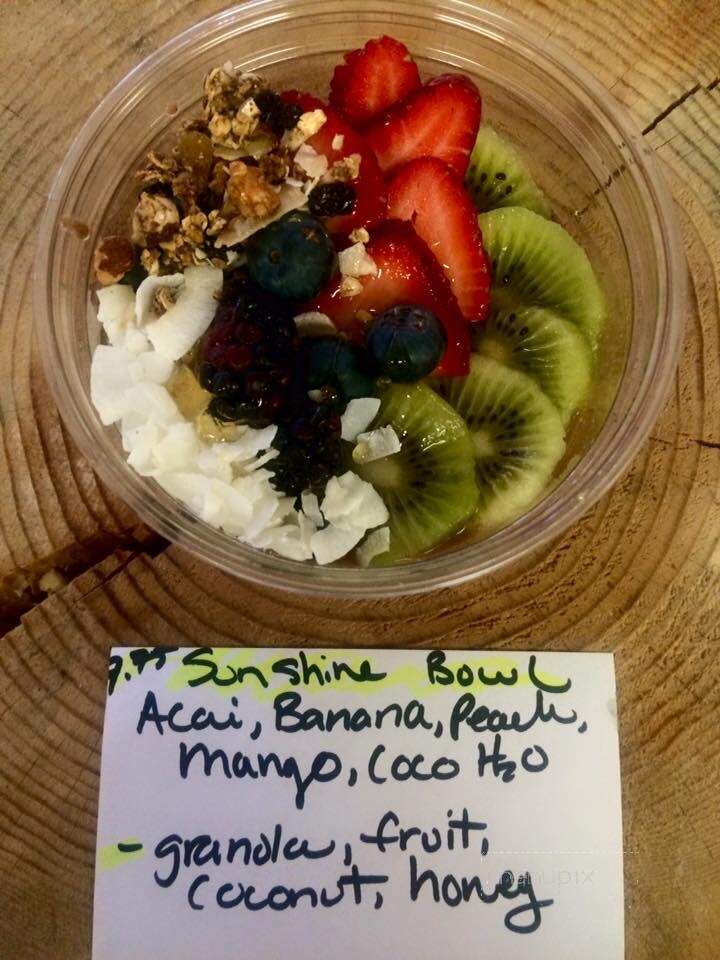 9.95 Sunshine Bowl
Acai, Banana, Peach,
Mango, Coco H₂O
- granola, fruit,
coconut, honey
menupix